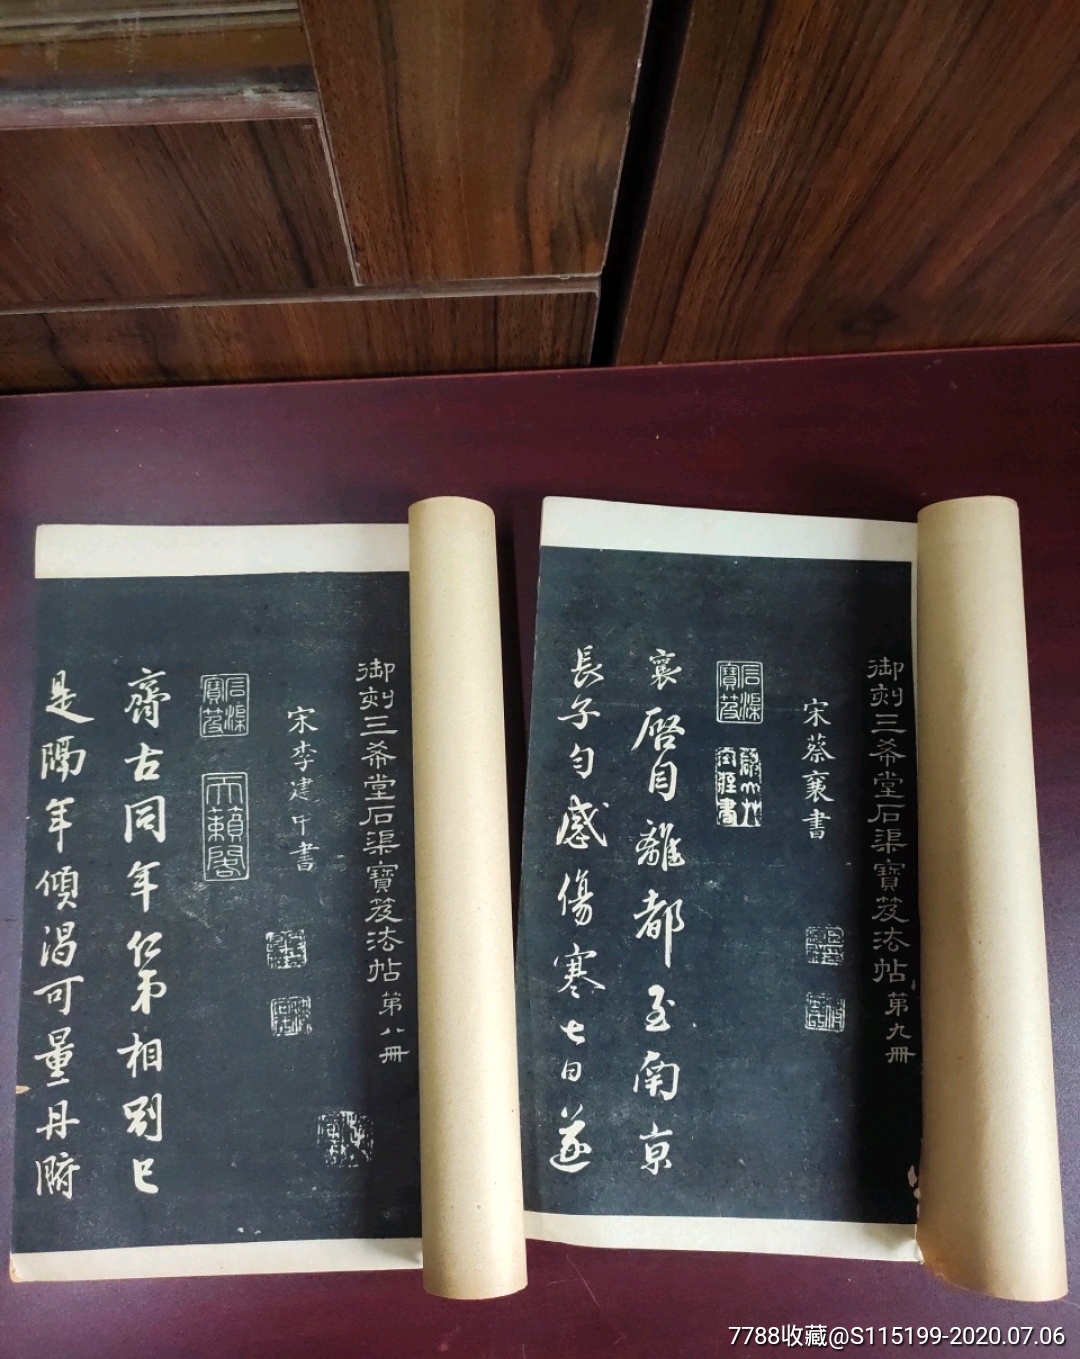 御刻三希堂石渠寶笈法帖第九冊
宋蔡襄書
石渠寶笈
襄啓自離都至南京
長子勻感傷寒七日遂
御刻三希堂石渠寶笈法帖第八冊
宋李建中書
石渠寶笈
天籟閣
齊古同年仁弟相別已
是隔年傾渴可量丹腑
7788收藏@S115199-2020.07.06